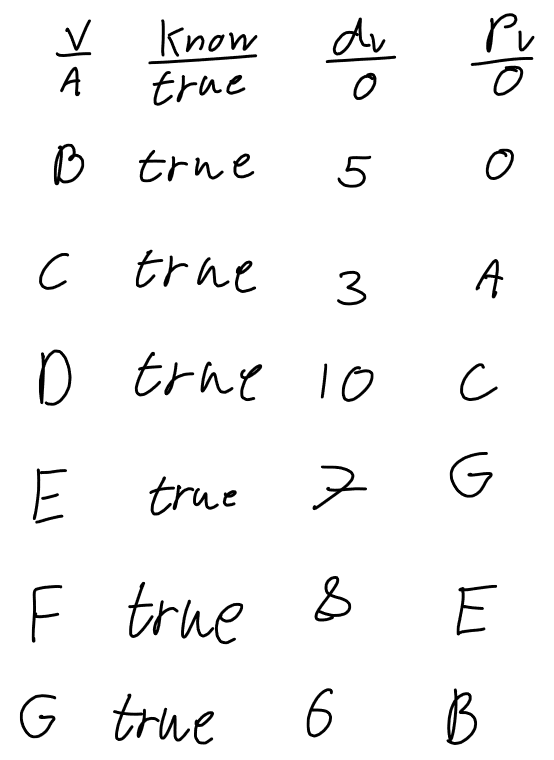 V know dv Pv
A true 0 0
B true 5 0
C true 3 A
D true 10 C
E true 7 G
F true 8 E
G true 6 B